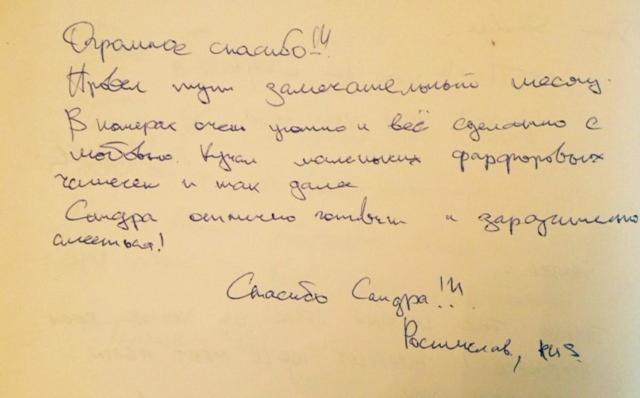 Огромное спасибо!!!
Провел тут замечательный месяц.
В номерах очен уютно и всё сделанно с
любовью. Куча маленьких фарфоровых
чашечек и так дале
Сандра отлично готовит и заразительно
смеется!
Спасибо Сандра!!!
Ростислав,